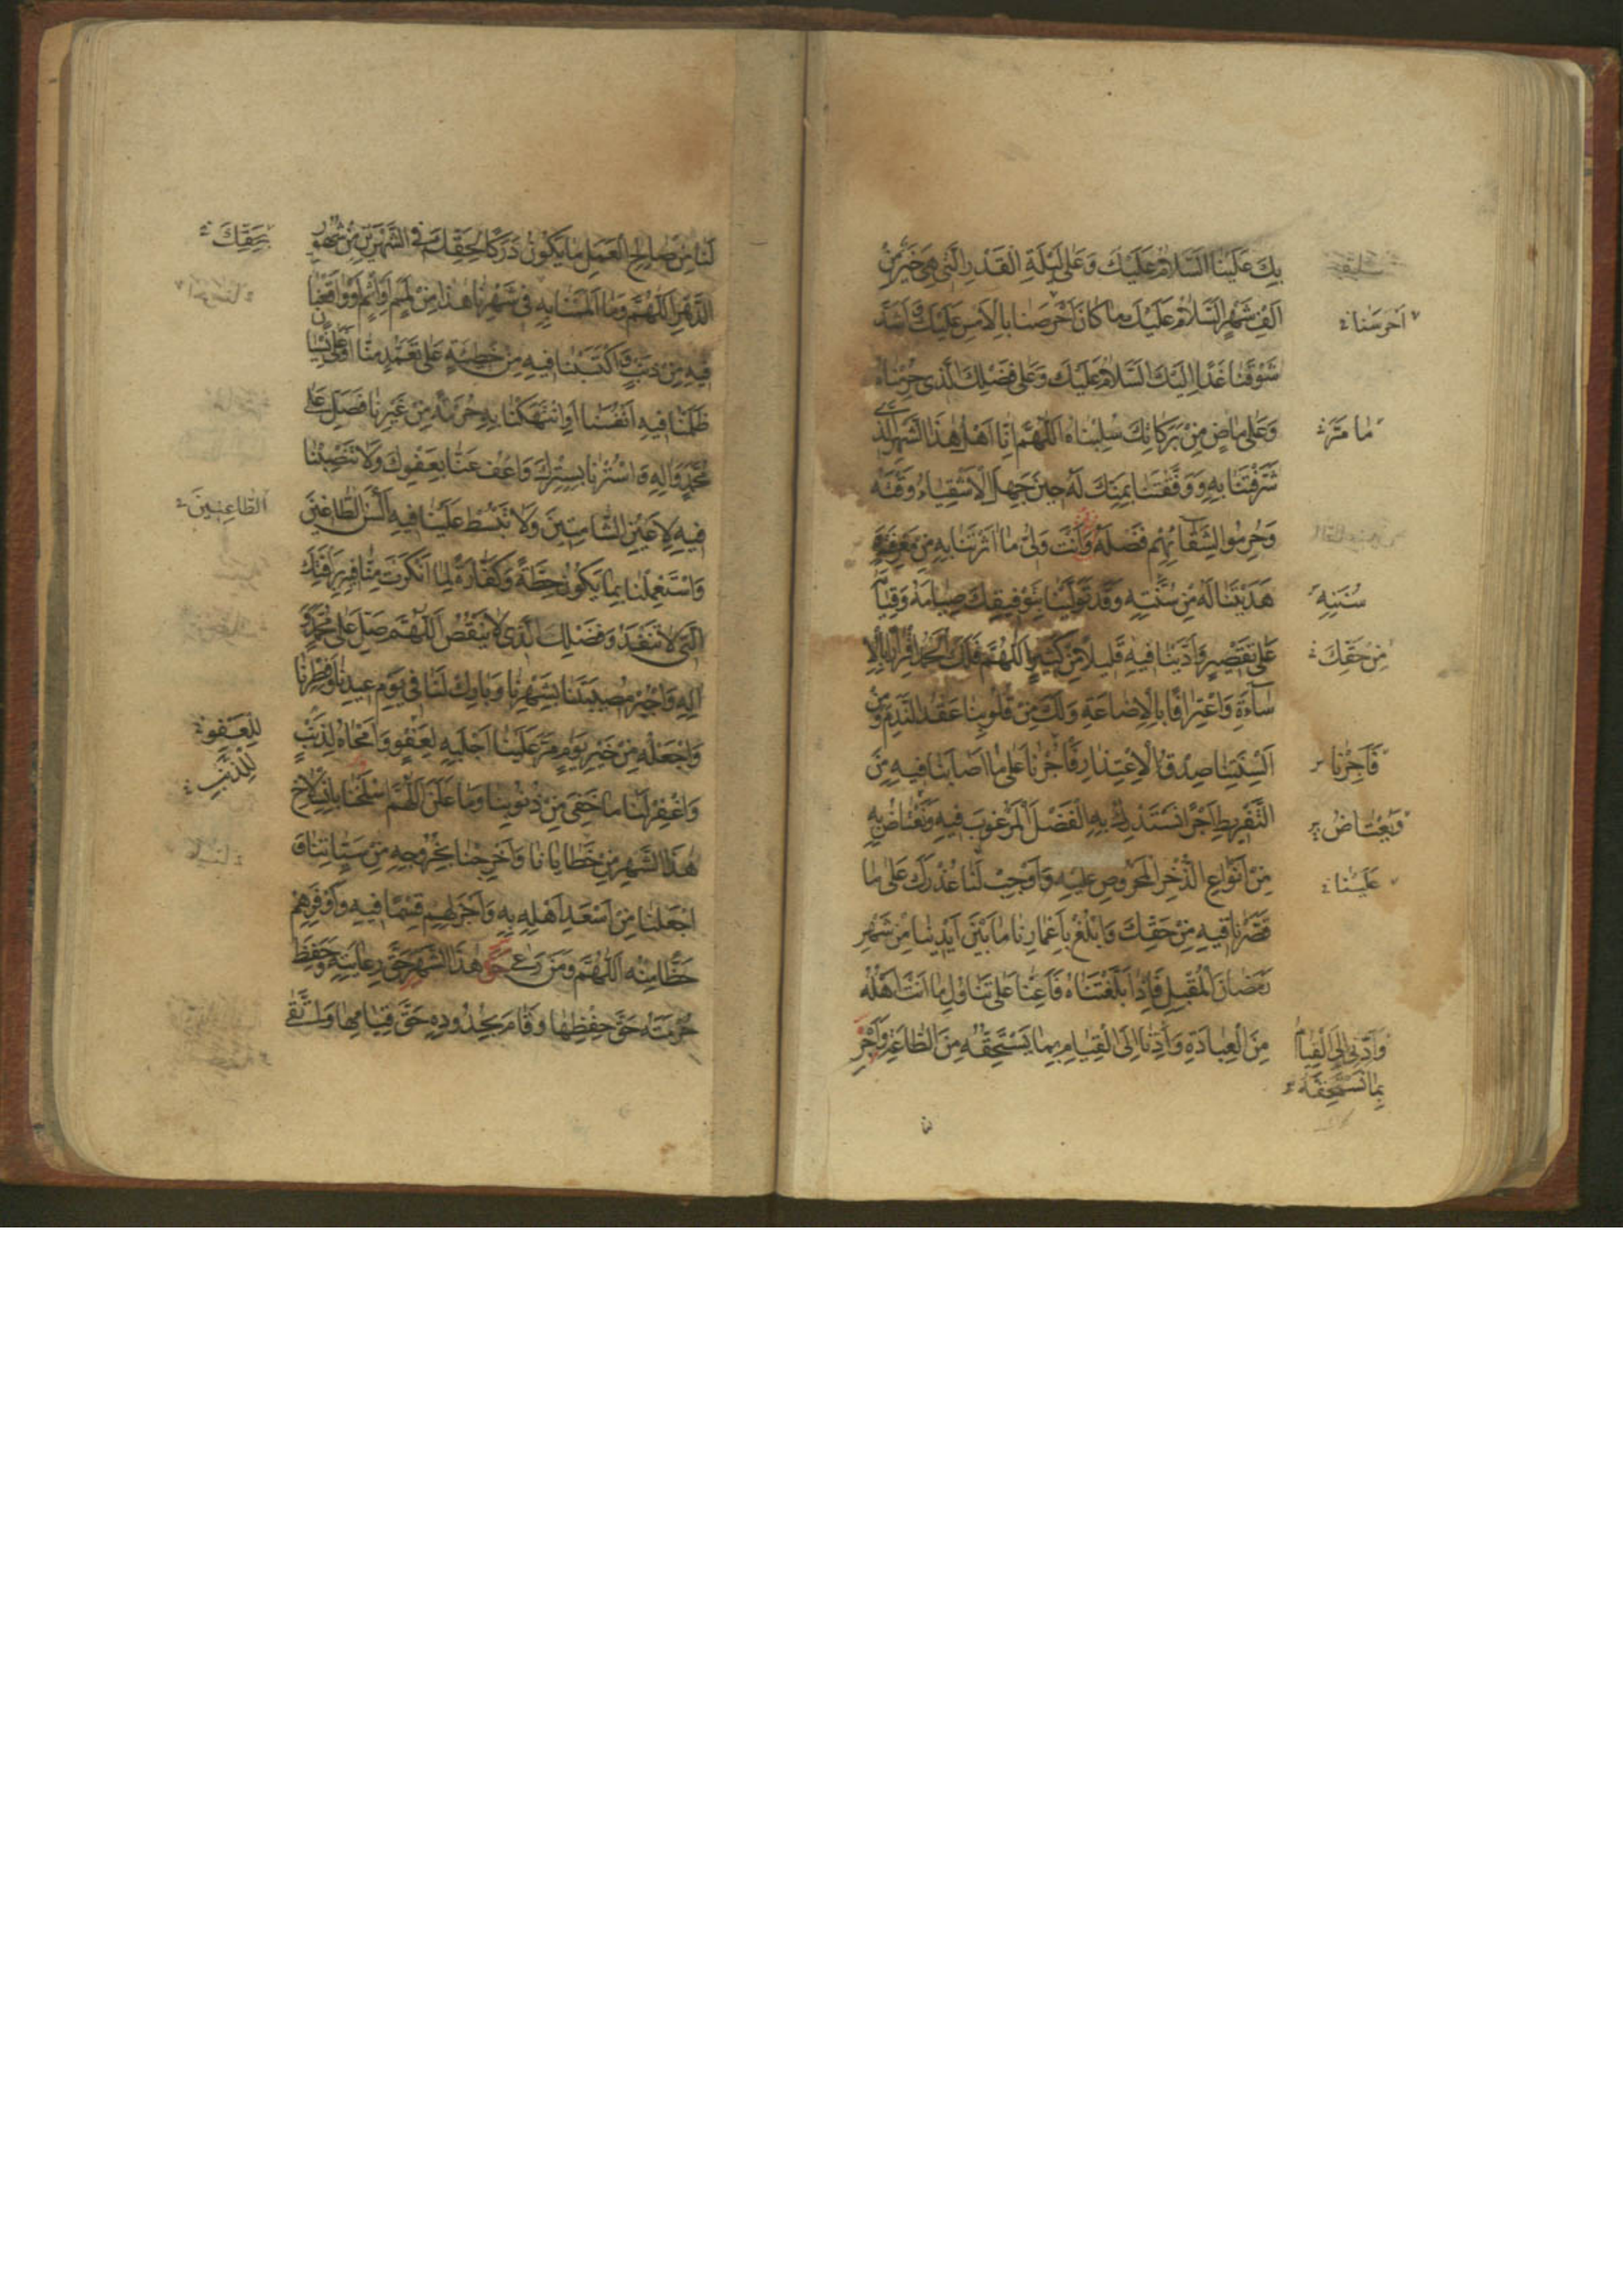 بِكَ عَلَيْنَا اَلسَّلامُ عَلَيْكَ وَعَلى لَيْلَةِ الْقَدْرِ الَّتي هِيَ خَيْرٌ مِنْ
اَلْفِ شَهْرٍ اَلسَّلامُ عَلَيْكَ ما كانَ اَحْرَصَنا بِالْاَمْسِ عَلَيْكَ وَاَشَدَّ
اَحْرَسَنا
شَوْقَنا غَدًا اِلَيْكَ اَلسَّلامُ عَلَيْكَ وَعَلى فَضْلِكَ الَّذي حُرِمْناهُ
وَعَلى ماضٍ مِنْ بَرَكاتِكَ سُلِبْناهُ اَللّهُمَّ اِنّا اَهْلُ هذَا الشَّهْرِ الَّذي
ما مَرَّ
شَرَّفْتَنا بِهِ وَوَفَّقْتَنا بِمَنِّكَ لَهُ حينَ جَهِلَ الْاَشْقِياءُ وَقْتَهُ
وَحُرِمُوا لِشَقائِهِمْ فَضْلَهُ وَاَنْتَ وَلِيُّ ما اٰثَرْتَنا بِهِ مِنْ مَعْرِفَتِهِ
هَدَيْتَنا لَهُ مِنْ سُنَّتِهِ وَقَدْ تَوَلَّيْنا بِتَوْفيقِكَ صِيامَهُ وَقِيامَهُ
سُنَنِهِ
عَلى تَقْصيرٍ وَاَدَّيْنا فيهِ قَليلاً مِنْ كَثيرٍ اَللّهُمَّ فَلَكَ الْحَمْدُ اِقْرارًا بِالْاِ
مِنْ حَقِّكَ
سآءَةِ وَاعْتِرافًا بِالْاِضاعَةِ وَلَكَ مِنْ قُلُوبِنا عَقْدُ النَّدَمِ وَمِنْ
اَلْسِنَتِنا صِدْقُ الْاِعْتِذارِ فَأْجُرْنا عَلى ما اَصابَنا فيهِ مِنَ
فَاَجِرْنا
التَّفْريطِ اَجْرًا نَسْتَدْرِكُ بِهِ الْفَضْلَ الْمَرْغُوبَ فيهِ وَنَعْتاضُ بِهِ
وَنَعْتاضُ
مِنْ اَنْواعِ الذُّخْرِ الْمَحْرُوصِ عَلَيْهِ وَاَوْجِبْ لَنا عُذْرَكَ عَلى ما
عَلَيْنا
قَصَّرْنا فيهِ مِنْ حَقِّكَ وَابْلُغْ بِاَعْمارِنا ما بَيْنَ اَيْدينا مِنْ شَهْرِ
رَمَضانَ الْمُقْبِلِ فَاِذا بَلَّغْتَناهُ فَاَعِنّا عَلى تَناوُلِ ما اَنْتَ اَهْلُهُ
مِنَ الْعِبادَةِ وَاَدِّنا اِلَى الْقِيامِ بِما يَسْتَحِقُّهُ مِنَ الطّاعَةِ وَاَجْرِ
وَاَدِّنا اِلَى الْقِيامِ
بِما تَسْتَحِقُّهُ
لَنا مِنْ صالِحِ الْعَمَلِ ما يَكُونُ دَرَكًا لِحَقِّكَ فِي الشَّهْرَيْنِ مِنْ شُهُورِ
بِحَقِّكَ
الدَّهْرِ اَللّهُمَّ وَما اَلْمَمْنا بِهِ في شَهْرِنا هذا مِنْ لَمَمٍ اَوْ اِثْمٍ اَوْ واقَعْنا
فيهِ مِنْ ذَنْبٍ وَاكْتَسَبْنا فيهِ مِنْ خَطيئَةٍ عَلى تَعَمُّدٍ مِنّا اَوْ عَلى نِسْيانٍ
ظَلَمْنا فيهِ اَنْفُسَنا اَوِ انْتَهَكْنا بِهِ حُرْمَةً مِنْ غَيْرِنا فَصَلِّ عَلى
مُحَمَّدٍ وَاٰلِهِ وَاسْتُرْنا بِسِتْرِكَ وَاعْفُ عَنّا بِعَفْوِكَ وَلا تَنْصِبْنا
فيهِ لِاَعْيُنِ الشّامِتينَ وَلا تَبْسُطْ عَلَيْنا فيهِ اَلْسُنَ الطّاغينَ
الطّاعِنينَ
وَاسْتَعْمِلْنا بِما يَكُونُ حِطَّةً وَكَفّارَةً لِما اَنْكَرْتَ مِنّا فيهِ بِرَأْفَتِكَ
الَّتي لا تَنْفَدُ وَفَضْلِكَ الَّذي لا يَنْقُصُ اَللّهُمَّ صَلِّ عَلى مُحَمَّدٍ وَ
اٰلِهِ وَاجْبُرْ مُصيبَتَنا بِشَهْرِنا وَبارِكْ لَنا في يَوْمِ عيدِنا وَفِطْرِنا
وَاجْعَلْهُ مِنْ خَيْرِ يَوْمٍ مَرَّ عَلَيْنا اَجْلَبِهِ لِعَفْوٍ وَاَمْحاهُ لِذَنْبٍ
لِلْعَفْوِ
لِلذَّنْبِ
وَاغْفِرْ لَنا ما خَفِيَ مِنْ ذُنُوبِنا وَما عَلَنَ اَللّهُمَّ اسْلَخْنا بِانْسِلاخِ
هذَا الشَّهْرِ مِنْ خَطايانا وَاَخْرِجْنا بِخُرُوجِهِ مِنْ سَيِّئاتِنا وَ
اجْعَلْنا مِنْ اَسْعَدِ اَهْلِهِ بِهِ وَاَجْزَلِهِمْ قِسْمًا فيهِ وَاَوْفَرِهِمْ
حَظًّا مِنْهُ اَللّهُمَّ وَمَنْ رَعى حَقَّ هذَا الشَّهْرِ حَقَّ رِعايَتِهِ وَحَفِظَ
حُرْمَتَهُ حَقَّ حِفْظِها وَقامَ بِحُدُودِهِ حَقَّ قِيامِها وَاتَّقى